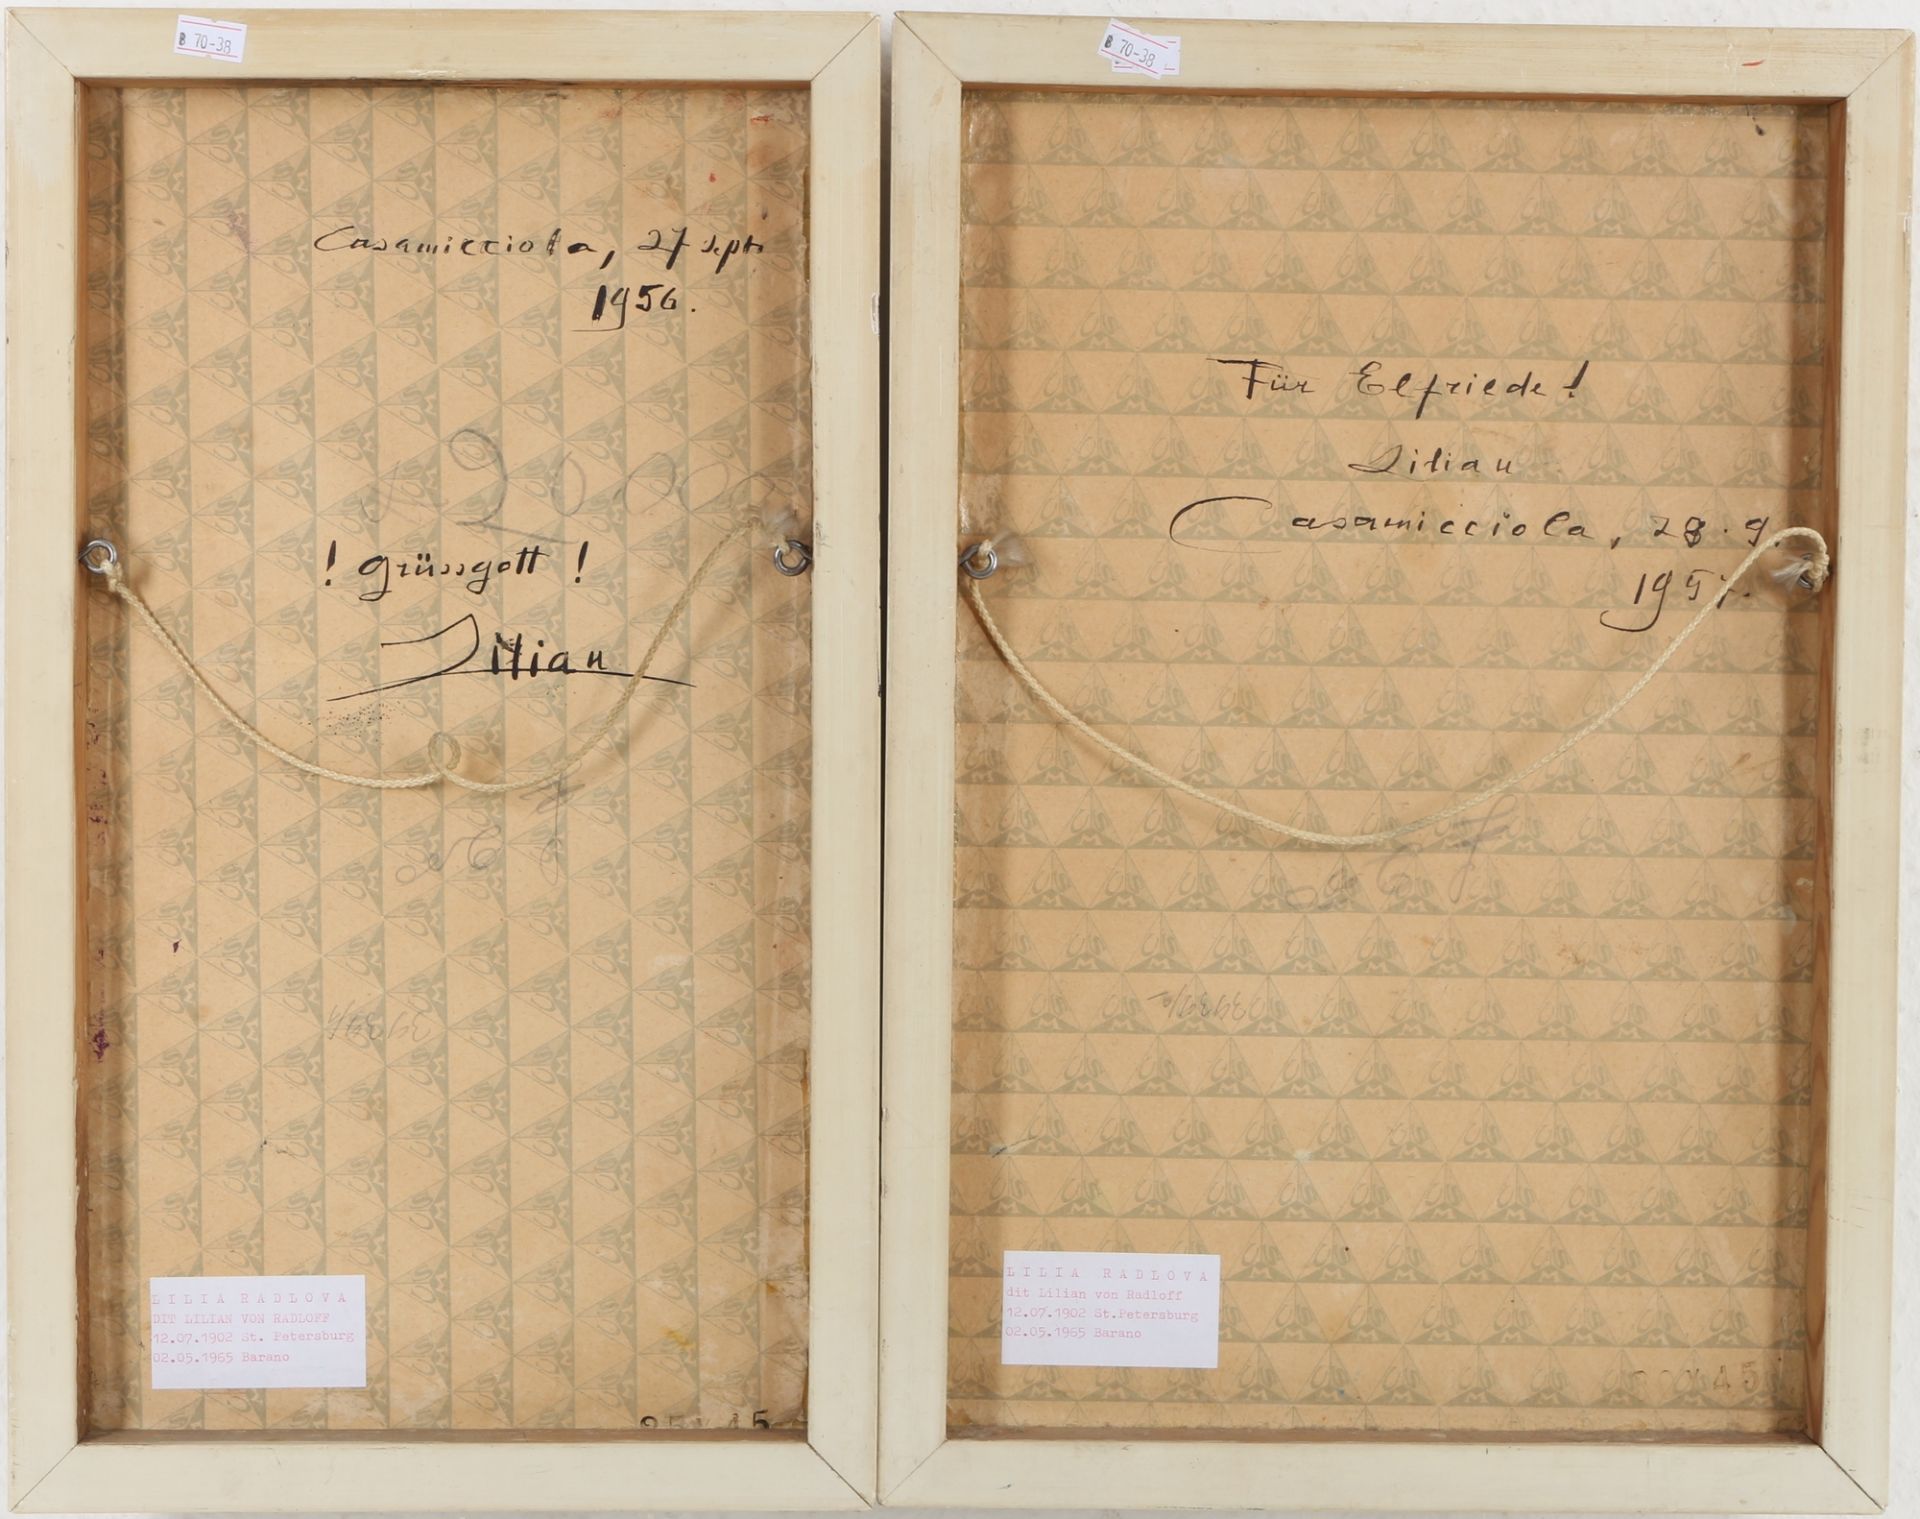 B 70-38
Casamicciola, 27 sept.
1956.
! grüssgott !
Lilian
LILIA RADLOVA
DIT LILIAN VON RADLOFF
12.07.1902 St. Petersburg
02.05.1965 Barano
B 70-38
Für Elfriede !
Lilian
Casamicciola, 28.9.
1957.
LILIA RADLOVA
dit Lilian von Radloff
12.07.1902 St.Petersburg
02.05.1965 Barano